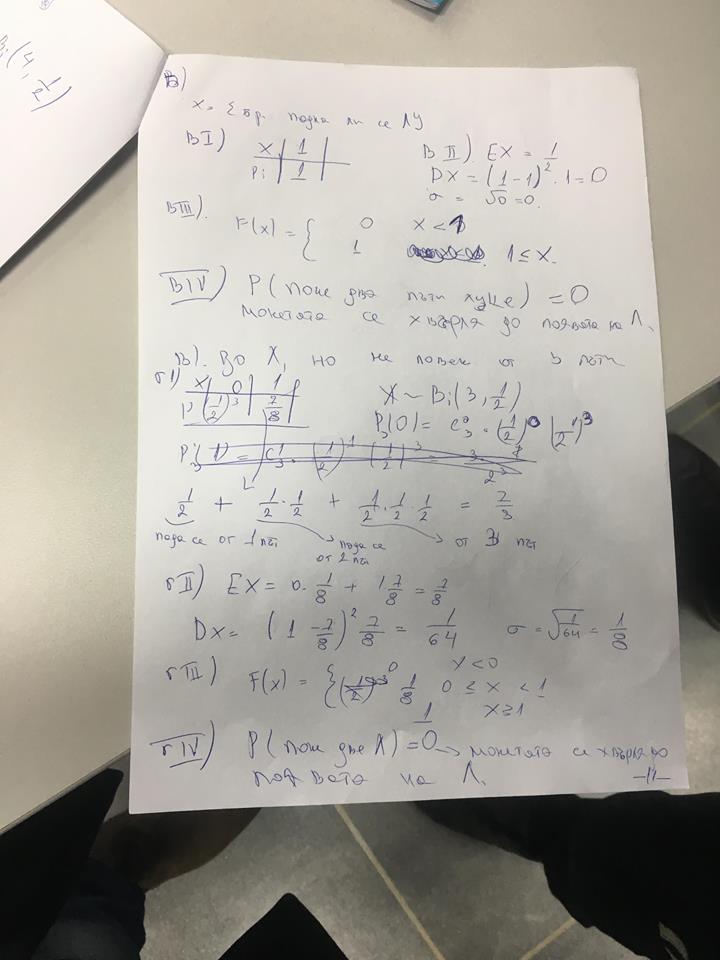 Bi(4, 1/2)
В)
X = { бр. пада ли се Л}
BI) X | 1
Pi | 1
BII). EX = 1
DX = (1-1)². 1 = 0
σ = √0 = 0.
BIII). F(x) = { 0 x < 1
1 1 ≤ x.
BIV) P( поне два пъти ) = 0
монетата се хвърля до появата на Л.
но не повек от 3 пъти
г I) X | 0 | 1
P | (1/2)³ | 7/8
X ~ Bi(3, 1/2)
P₃(0) = C₃⁰ . (1/2)⁰ (1/2)³
1/2 + 1/2 . 1/2 + 1/2 . 1/2 . 1/2 = 7/8
пада се от 1 път
пада се от 2 път
от 3 път
г II) EX = 0. 1/8 + 1 7/8 = 7/8
Dx = (1 - 7/8)² 7/8 = 1/64 σ = √1/64 = 1/8
г III) F(x) = { 0 x < 0
1/8 0 ≤ x < 1
1 x ≥ 1
г IV) P( поне две Л) = 0 → монетата се хвърля до
появата на Л. -11-